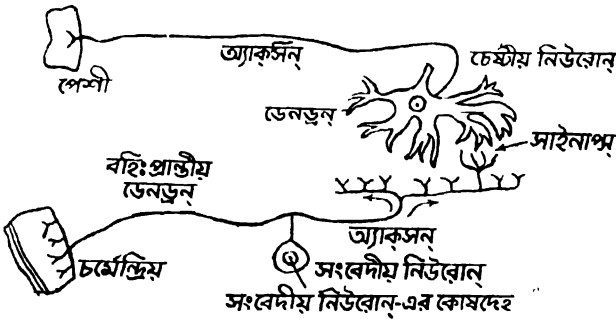 অ্যাক্‌সন্
চেষ্টীয় নিউরোন্
পেশী
ডেনড্রন্
সাইনাপ্স্
বহিঃপ্রান্তীয়
ডেনড্রন্
অ্যাক্‌সন্
চর্মেন্দ্রিয়
সংবেদীয় নিউরোন্
সংবেদীয় নিউরোন্-এর কোষদেহ